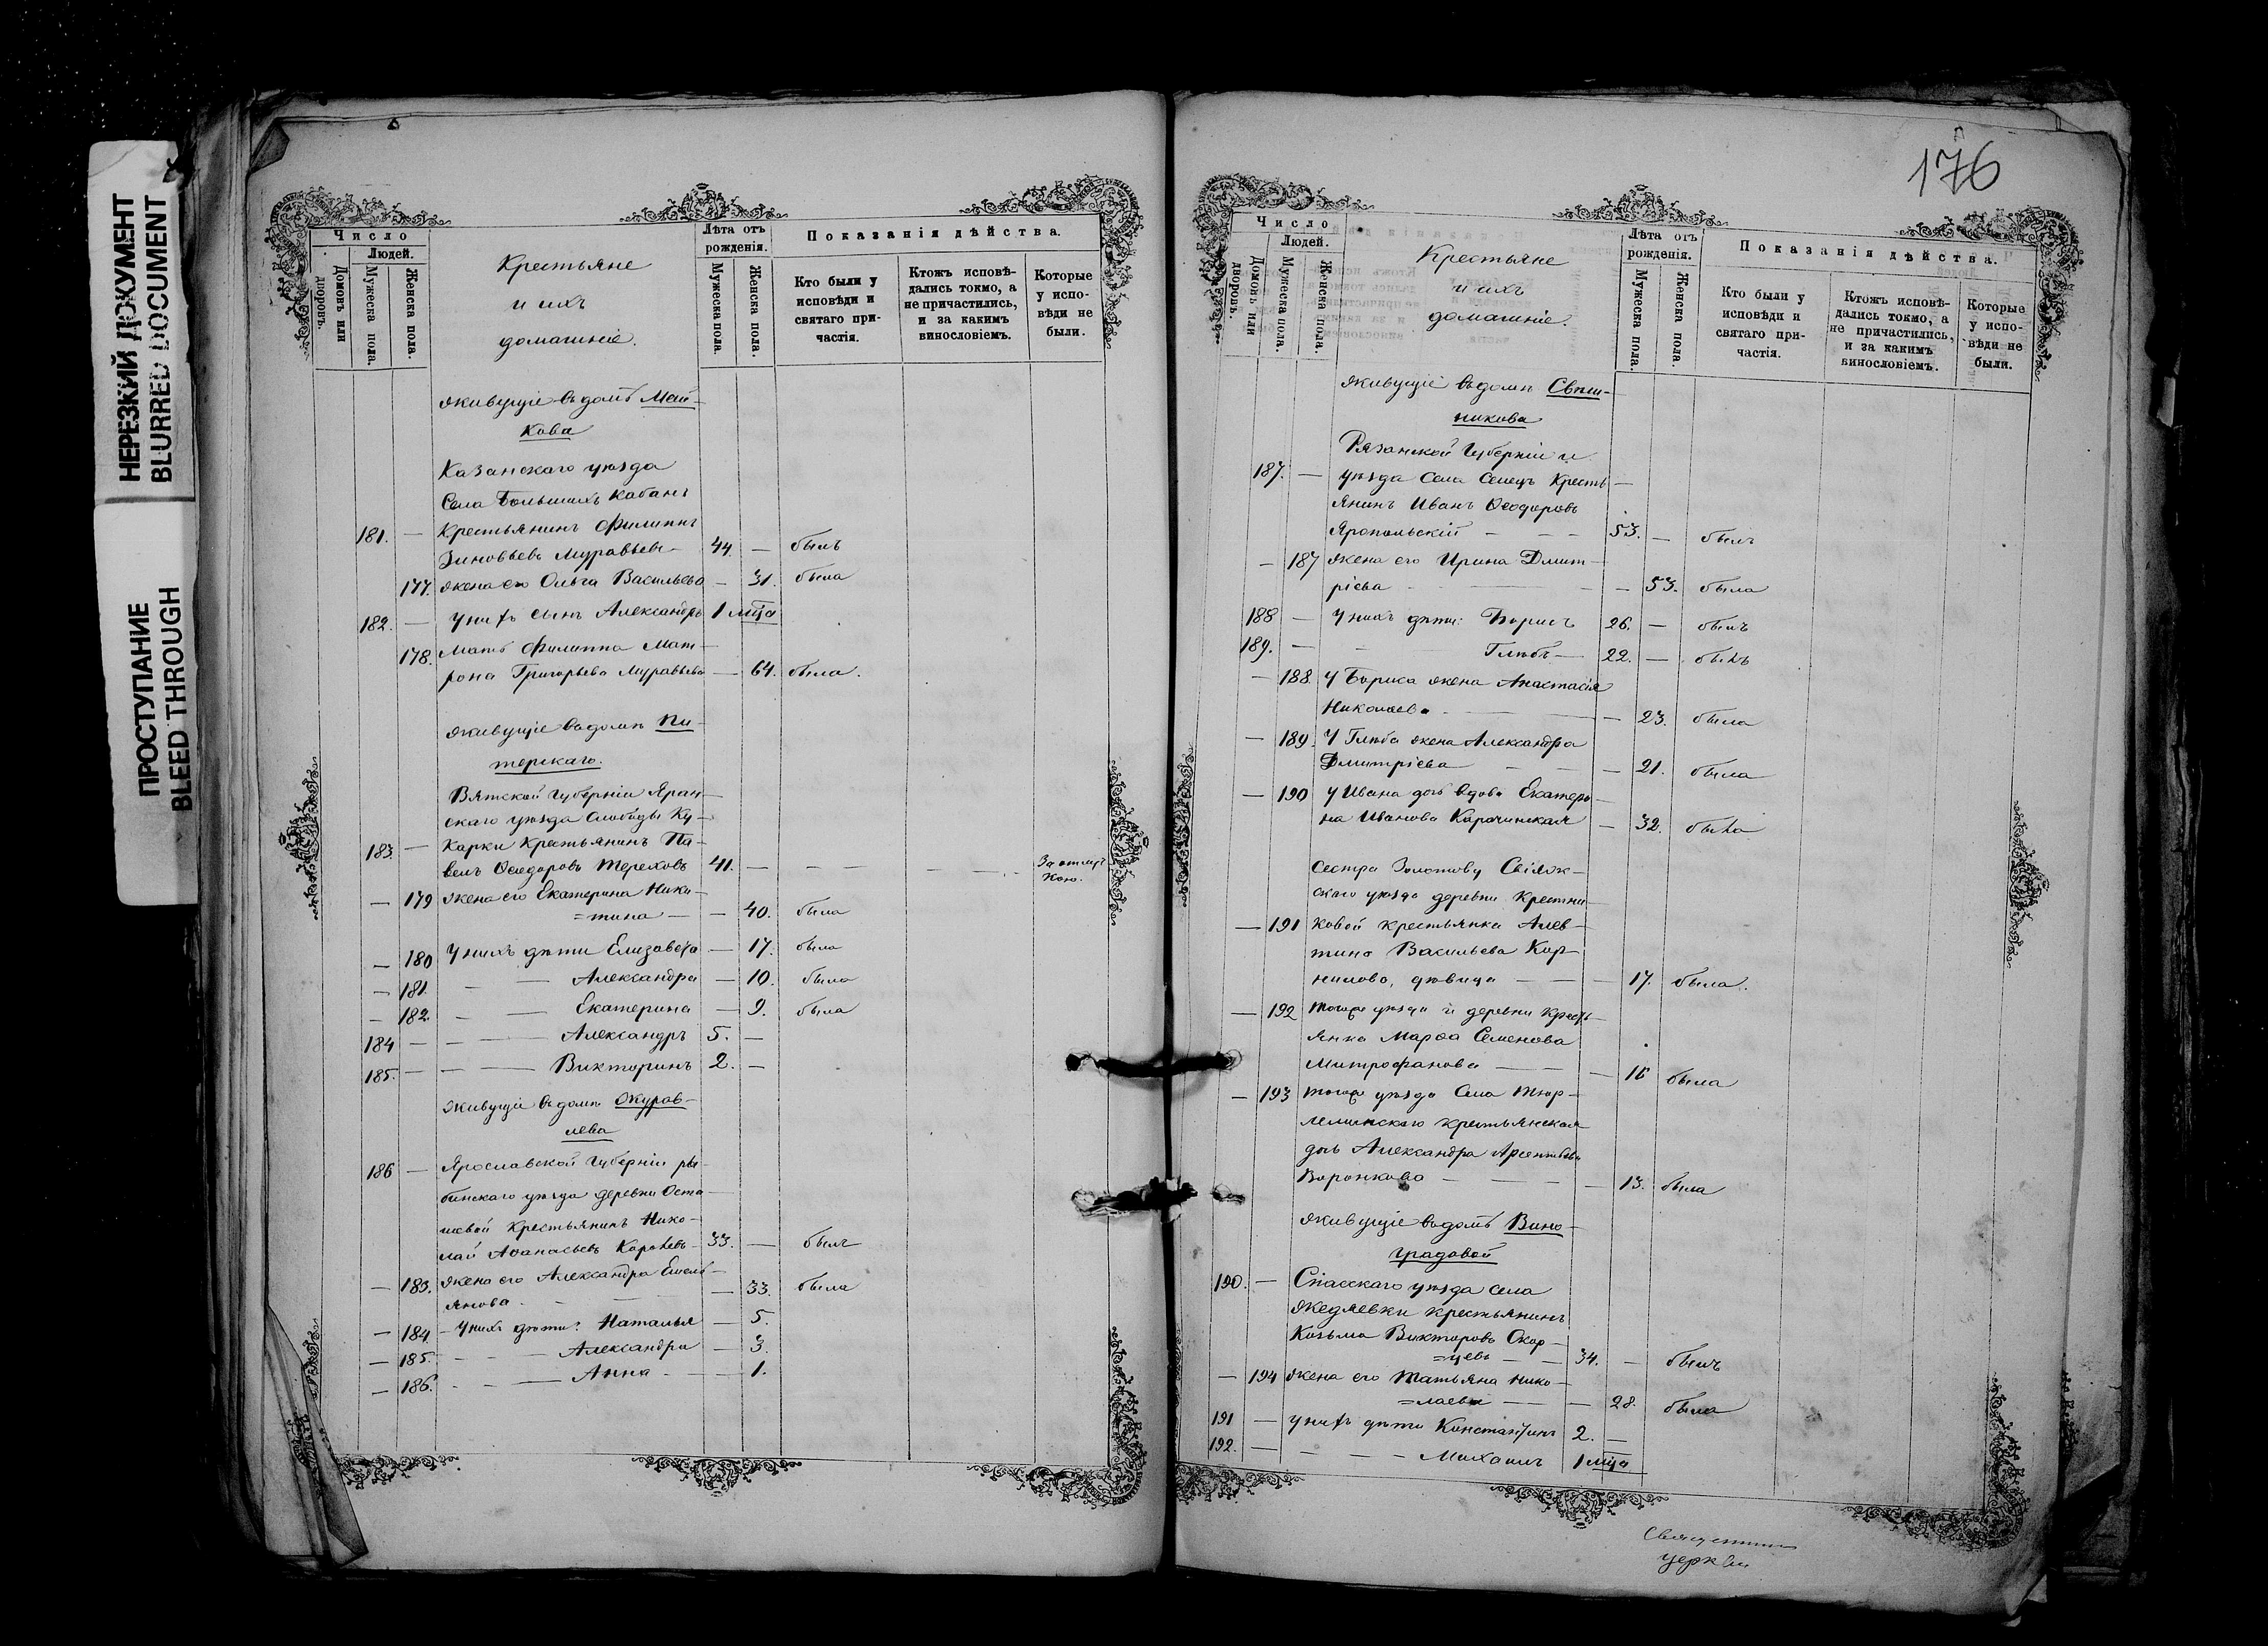 НЕРЕЗКИЙ ДОКУМЕНТ
BLURRED DOCUMENT
ПРОСТУПАНИЕ
BLEED THROUGH
Число
Людей.
Домовъ или дворовъ.
Мужеска пола.
Женска пола.
Крестьяне
и ихъ
домашніе.
Лѣта отъ рожденія.
Мужеска пола.
Женска пола.
Показанія дѣйства.
Кто были у исповѣди и святаго причастія.
Ктожъ исповѣдались токмо, а не причастились, и за какимъ винословіемъ.
Которые у исповѣди не были.
живущіе въ домѣ Май-
кова
Казанскаго уѣзда
Села Большихъ Кабанъ
181. — Крестьянинъ Филиппъ
Зиновьевъ Муравьевъ 44. — былъ
177. жена его Ольга Васильева — 31. была
182. — у нихъ сынъ Александръ 1 мца
178. Мать Филиппа Мат-
рона Григорьева Муравьева — 64. была.
живущіе въ домѣ Пи-
терскаго.
Вятской губерніи Яран-
скаго уѣзда Слободы Ку-
183. — карки Крестьянинъ Па-
велъ Ѳеодоровъ Тереховъ 41. — За отлуч-
кою.
— 179 жена его Екатерина Ники-
=тина — — 40. была
— 180 У нихъ дѣти Елизавета — 17. была
— 181. — — Александра — 10. была
— 182. — — Екатерина — 9. была
184 — — — Александръ 5. —
185. — — — Викторинъ 2. —
живущіе въ домѣ Журав-
лева
186 — Ярославской губерніи Ры-
бинскаго уѣзда деревни Оста-
шевой Крестьянинъ Нико-
лай Аѳанасьевъ Королевъ 33. — былъ
— 183. жена его Александра Емель-
янова — 33. была
— 184. — У нихъ дѣти: Наталья — 5.
— 185. — — Александра — 3.
— 186. — — Анна — 1.
176
Число
Людей.
Домовъ или дворовъ.
Мужеска пола.
Женска пола.
Крестьяне
и ихъ
домашніе.
Лѣта отъ рожденія.
Мужеска пола.
Женска пола.
Показанія дѣйства.
Кто были у исповѣди и святаго причастія.
Ктожъ исповѣдались токмо, а не причастились, и за какимъ винословіемъ.
Которые у исповѣди не были.
живущіе въ домѣ Свѣш-
никова
Рязанской Губерніи и
187. — уѣзда Села Селецъ Кресть-
янинъ Иванъ Ѳеодоровъ
Яропольскій — — 53. — былъ
— 187 жена его Ирина Дмит-
ріева — — 53. была
188 — У нихъ дѣти: Борисъ 26. — былъ
189. — — Глѣбъ — 22. — былъ
— 188. У Бориса жена Анастасія
Николаева — — 23. была
— 189. У Глѣба жена Александра
Дмитріева — — 21. была
— 190 У Ивана дочь вдова Екатери-
на Иванова Карачинская — 32. была
Сестра Золотову Свіяж-
скаго уѣзда деревни Крестни-
— 191 ковой крестьянка Алев-
тина Васильева Кор-
нилова, дѣвица — — 17. была.
— 192 Тогоже уѣзда и деревни Кресть-
янка Марѳа Семенова
Митрофанова — — 16 была
— 193 Тогоже уѣзда Села Тюр-
леминскаго крестьянская
дочь Александра Арсентьева
Воронкова — — 13. была
живущіе въ домѣ Вино-
градовой
190. — Спасскаго уѣзда села
Жедяевки крестьянинъ
Козьма Викторовъ Скор-
=цевъ — 34. — былъ
— 194 жена его Татьяна Нико-
=лаева — — 28. была
191 — У нихъ дѣти Константинъ 2. —
192. — — Михаилъ 1 мца
Священник
церкви